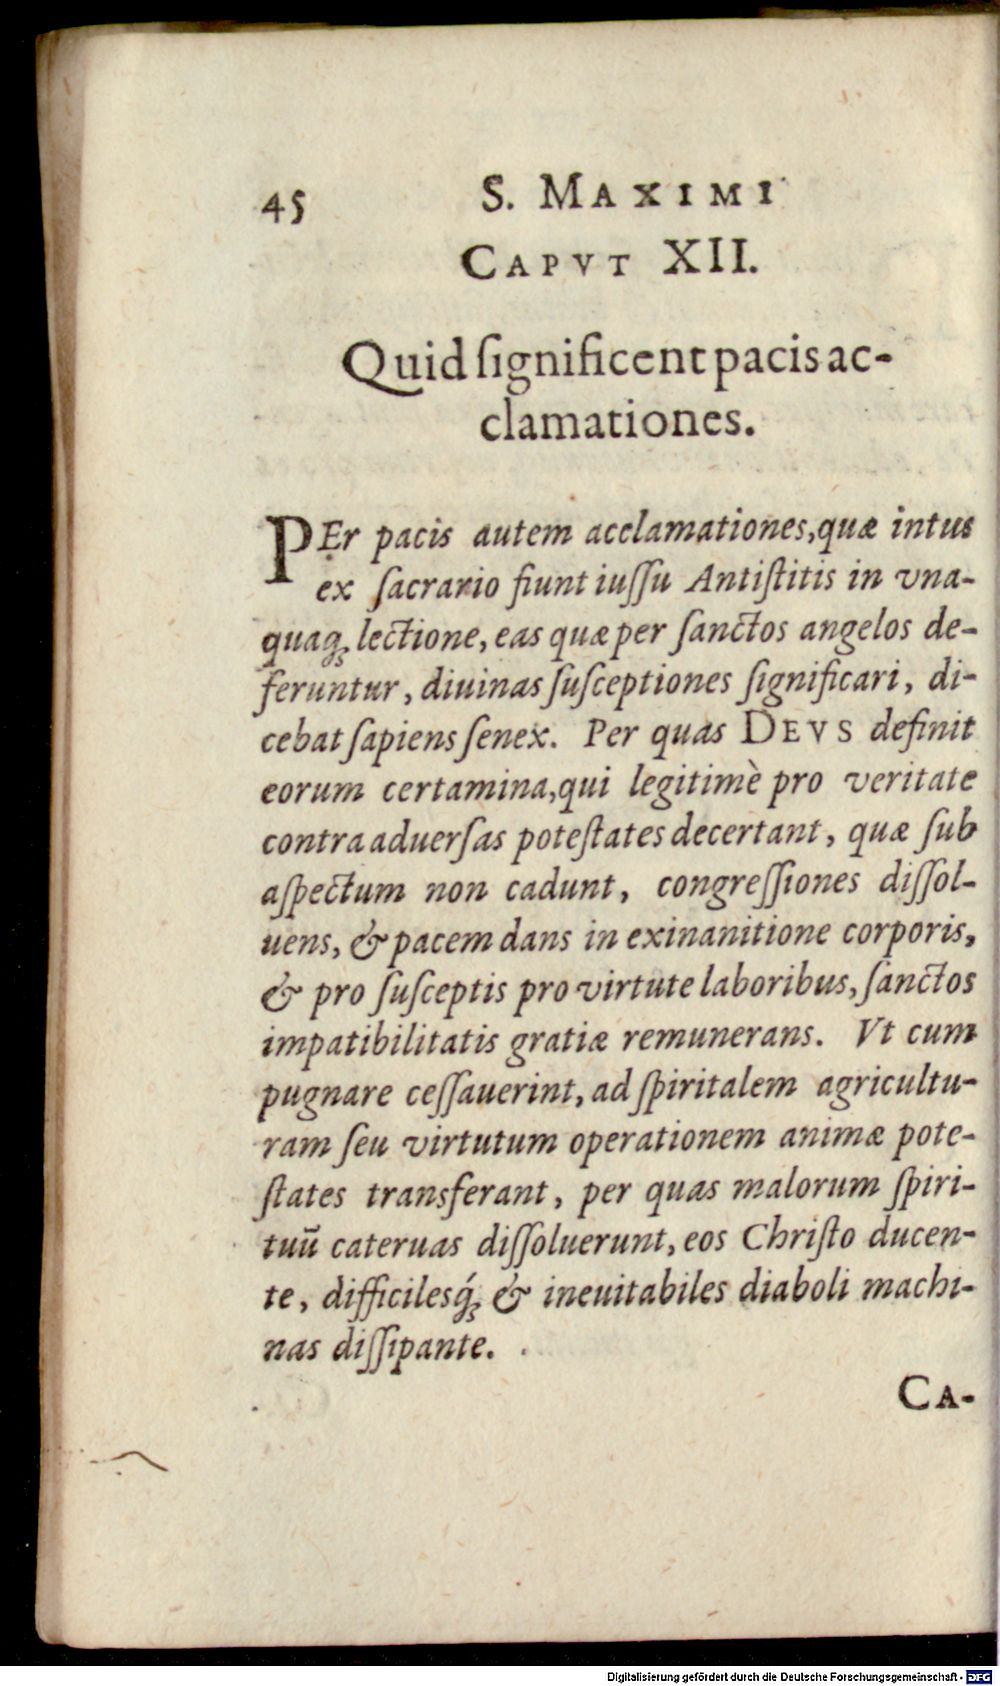 45 S. MAXIMI
CAPVT XII.
Quid ſignificent pacis ac-
clamationes.
PEr pacis autem acclamationes, quæ intus
ex ſacrario fiunt iuſſu Antiſtitis in vna-
quaq; lectione, eas quæ per ſanctos angelos de-
feruntur, diuinas ſuſceptiones ſignificari, di-
cebat ſapiens ſenex. Per quas DEVS definit
eorum certamina, qui legitimè pro veritate
contra aduerſas poteſtates decertant, quæ ſub
aſpectum non cadunt, congreſſiones diſſol-
uens, & pacem dans in exinanitione corporis,
& pro ſuſceptis pro virtute laboribus, ſanctos
impatibilitatis gratiæ remunerans. Vt cum
pugnare ceſſauerint, ad ſpiritalem agricultu-
ram ſeu virtutum operationem animæ pote-
ſtates transferant, per quas malorum ſpiri-
tuū cateruas diſſoluerunt, eos Chriſto ducen-
te, difficilesq́; & ineuitabiles diaboli machi-
nas diſſipante.
CA-
Digitalisierung gefördert durch die Deutsche Forschungsgemeinschaft - DFG